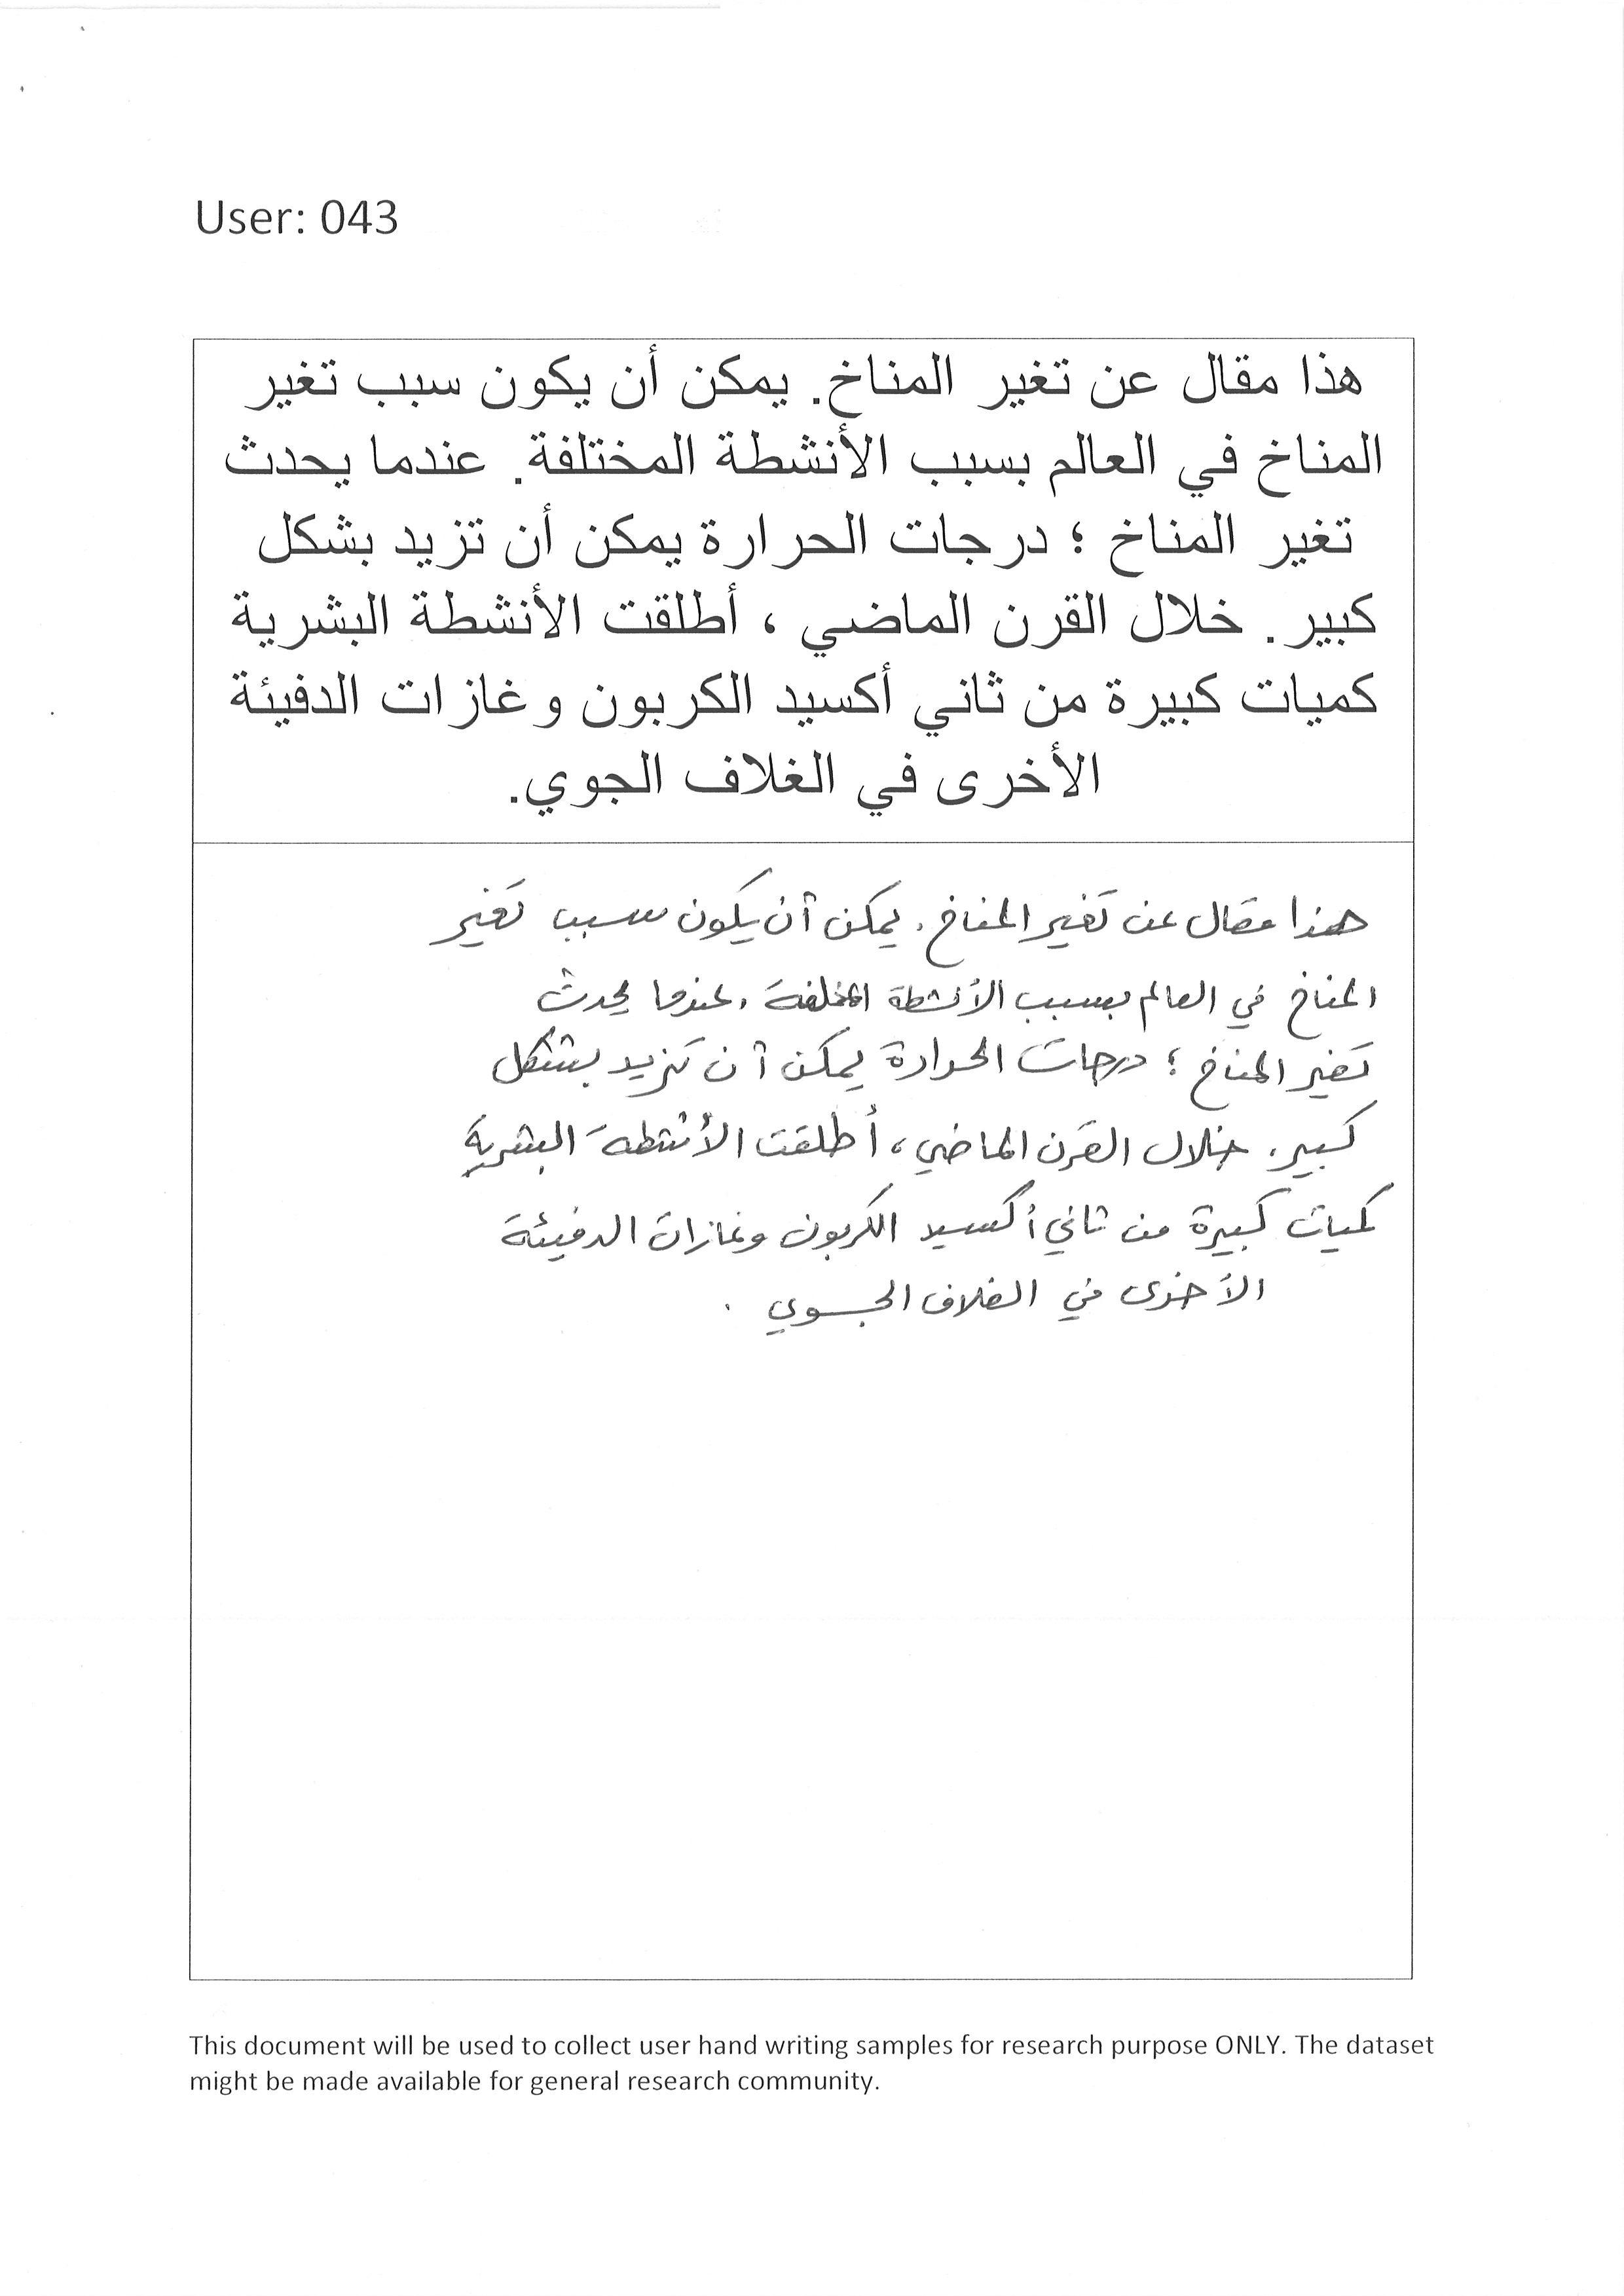 User: 043
هذا مقال عن تغير المناخ. يمكن أن يكون سبب تغير
المناخ في العالم بسبب الأنشطة المختلفة. عندما يحدث
تغير المناخ ؛ درجات الحرارة يمكن أن تزيد بشكل
كبير. خلال القرن الماضي ، أطلقت الأنشطة البشرية
كميات كبيرة من ثاني أكسيد الكربون وغازات الدفيئة
الأخرى في الغلاف الجوي.
هذا مقال عن تغير المناخ. يمكن أن يكون سبب تغير
المناخ في العالم بسبب الأنشطة المختلفة. عندما يحدث
تغير المناخ ؛ درجات الحرارة يمكن أن تزيد بشكل
كبير. خلال القرن الماضي، أطلقت الأنشطة البشرية
كميات كبيرة من ثاني أكسيد الكربون وغازات الدفيئة
الأخرى في الغلاف الجوي .
This document will be used to collect user hand writing samples for research purpose ONLY. The dataset
might be made available for general research community.